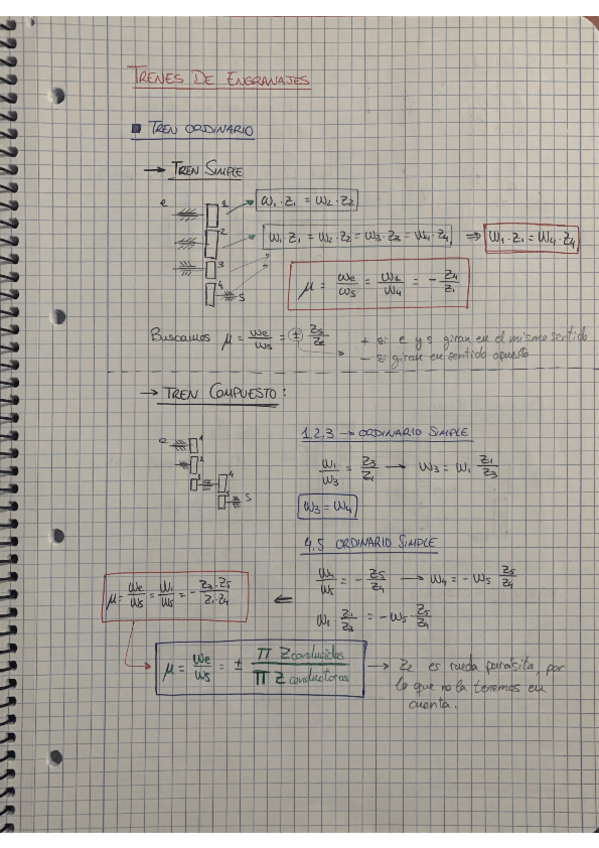 TRENES DE ENGRANAJES
TREN ORDINARIO
→ TREN SIMPLE
e 1 2 3 4 S
ω₁·Z₁ = ω₂·Z₂
ω₁ Z₁ = ω₂·Z₂ = ω₃·Z₃ = ω₄·Z₄ ⇒ ω₁·Z₁ = ω₄·Z₄
μ = ωe/ωs = ω₁/ω₄ = - Z₄/Z₁
Buscamos μ = ωe/ωs = ± Zs/Ze + si e y s giran en el mismo sentido
- si giran en sentido opuesto
→ TREN COMPUESTO:
e 1 2 3 4 S
1,2,3 → ORDINARIO SIMPLE
ω₁/ω₃ = Z₃/Z₁ → ω₃ = ω₁ Z₁/Z₃
ω₃ = ω₄
4,5 ORDINARIO SIMPLE
ω₄/ω₅ = - Z₅/Z₄ → ω₄ = - ω₅ Z₅/Z₄
ω₁ Z₁/Z₃ = - ω₅ · Z₅/Z₄
μ = ωe/ωs = ω₁/ω₅ = - Z₃·Z₅/Z₁·Z₄ ⇐
μ = ωe/ωs = ± Π Z conducidas/Π Z conductoras → Z₂ es rueda parásita, por
lo que no la tenemos en
cuenta.